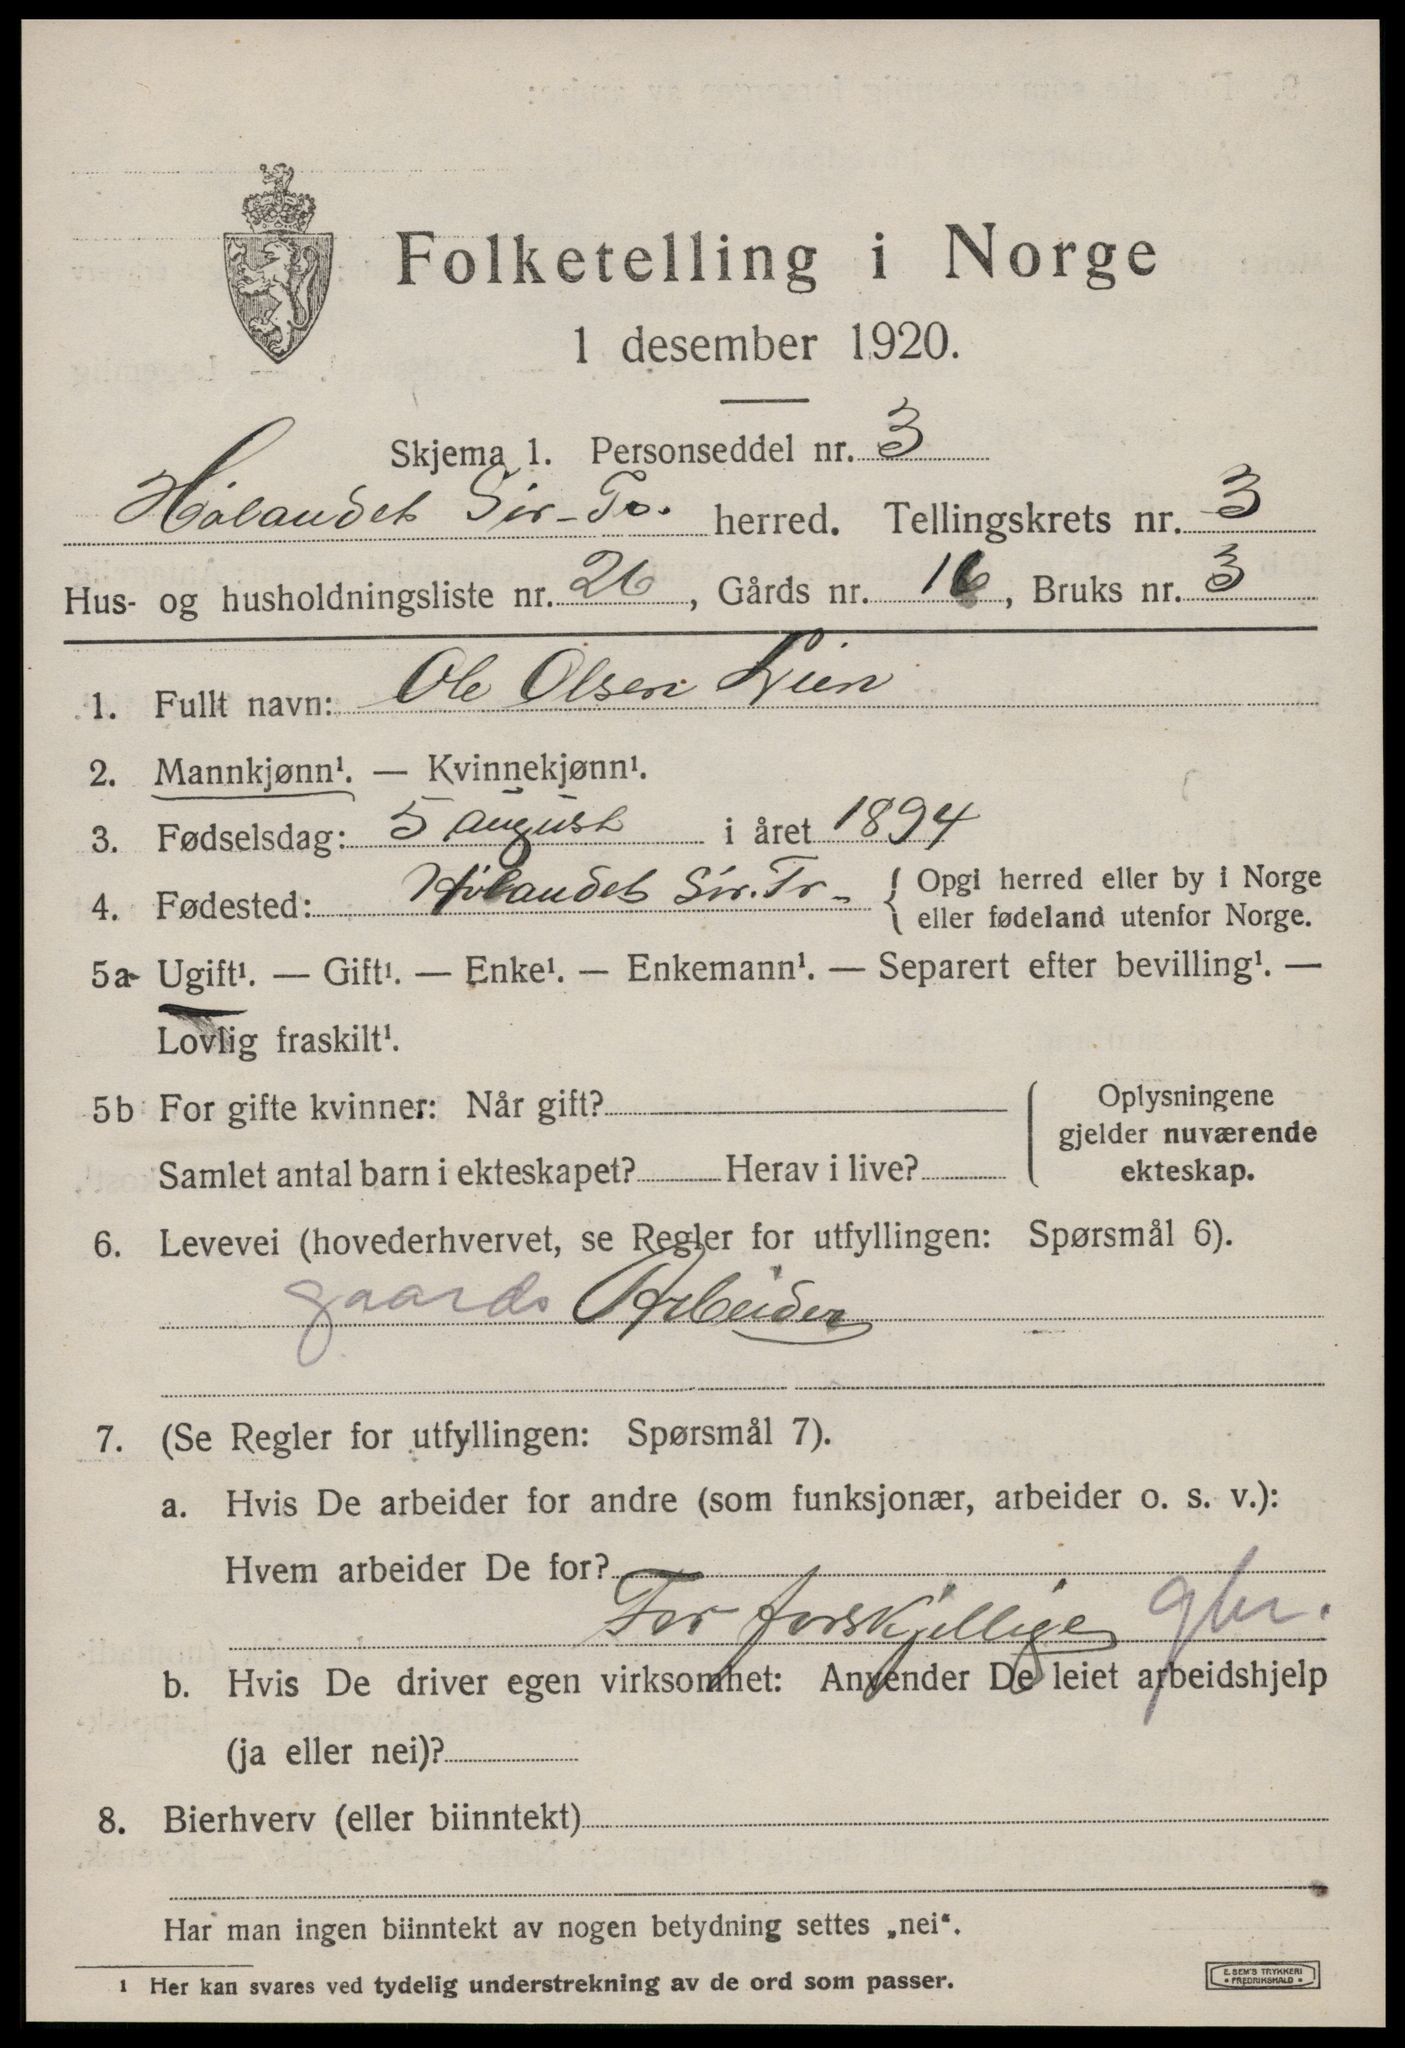 Folketelling i Norge
1 desember 1920.
Skjema 1. Personseddel nr. 3
Hølandet Sør-Tr. herred. Tellingskrets nr. 3
Hus- og husholdningsliste nr. 26, Gårds nr. 16, Bruks nr. 3
1. Fullt navn: Ole Olsen Lien
2. Mannkjønn¹. — Kvinnekjønn¹.
3. Fødselsdag: 5 august i året 1894
4. Fødested: Hølandet Sør. Tr. { Opgi herred eller by i Norge
eller fødeland utenfor Norge.
5a Ugift¹. — Gift¹. — Enke¹. — Enkemann¹. — Separert efter bevilling¹. —
Lovlig fraskilt¹.
5b For gifte kvinner: Når gift?
Samlet antal barn i ekteskapet? Herav i live?
Oplysningene
gjelder nuværende
ekteskap.
6. Levevei (hovederhvervet, se Regler for utfyllingen: Spørsmål 6).
gaards Arbeider
7. (Se Regler for utfyllingen: Spørsmål 7).
a. Hvis De arbeider for andre (som funksjonær, arbeider o. s. v.):
Hvem arbeider De for?
For forskjellige gbr.
b. Hvis De driver egen virksomhet: Anvender De leiet arbeidshjelp
(ja eller nei)?
8. Bierhverv (eller biinntekt)
Har man ingen biinntekt av nogen betydning settes „nei“.
1 Her kan svares ved tydelig understrekning av de ord som passer.
E. SEM'S TRYKKERI
FREDRIKSHALD